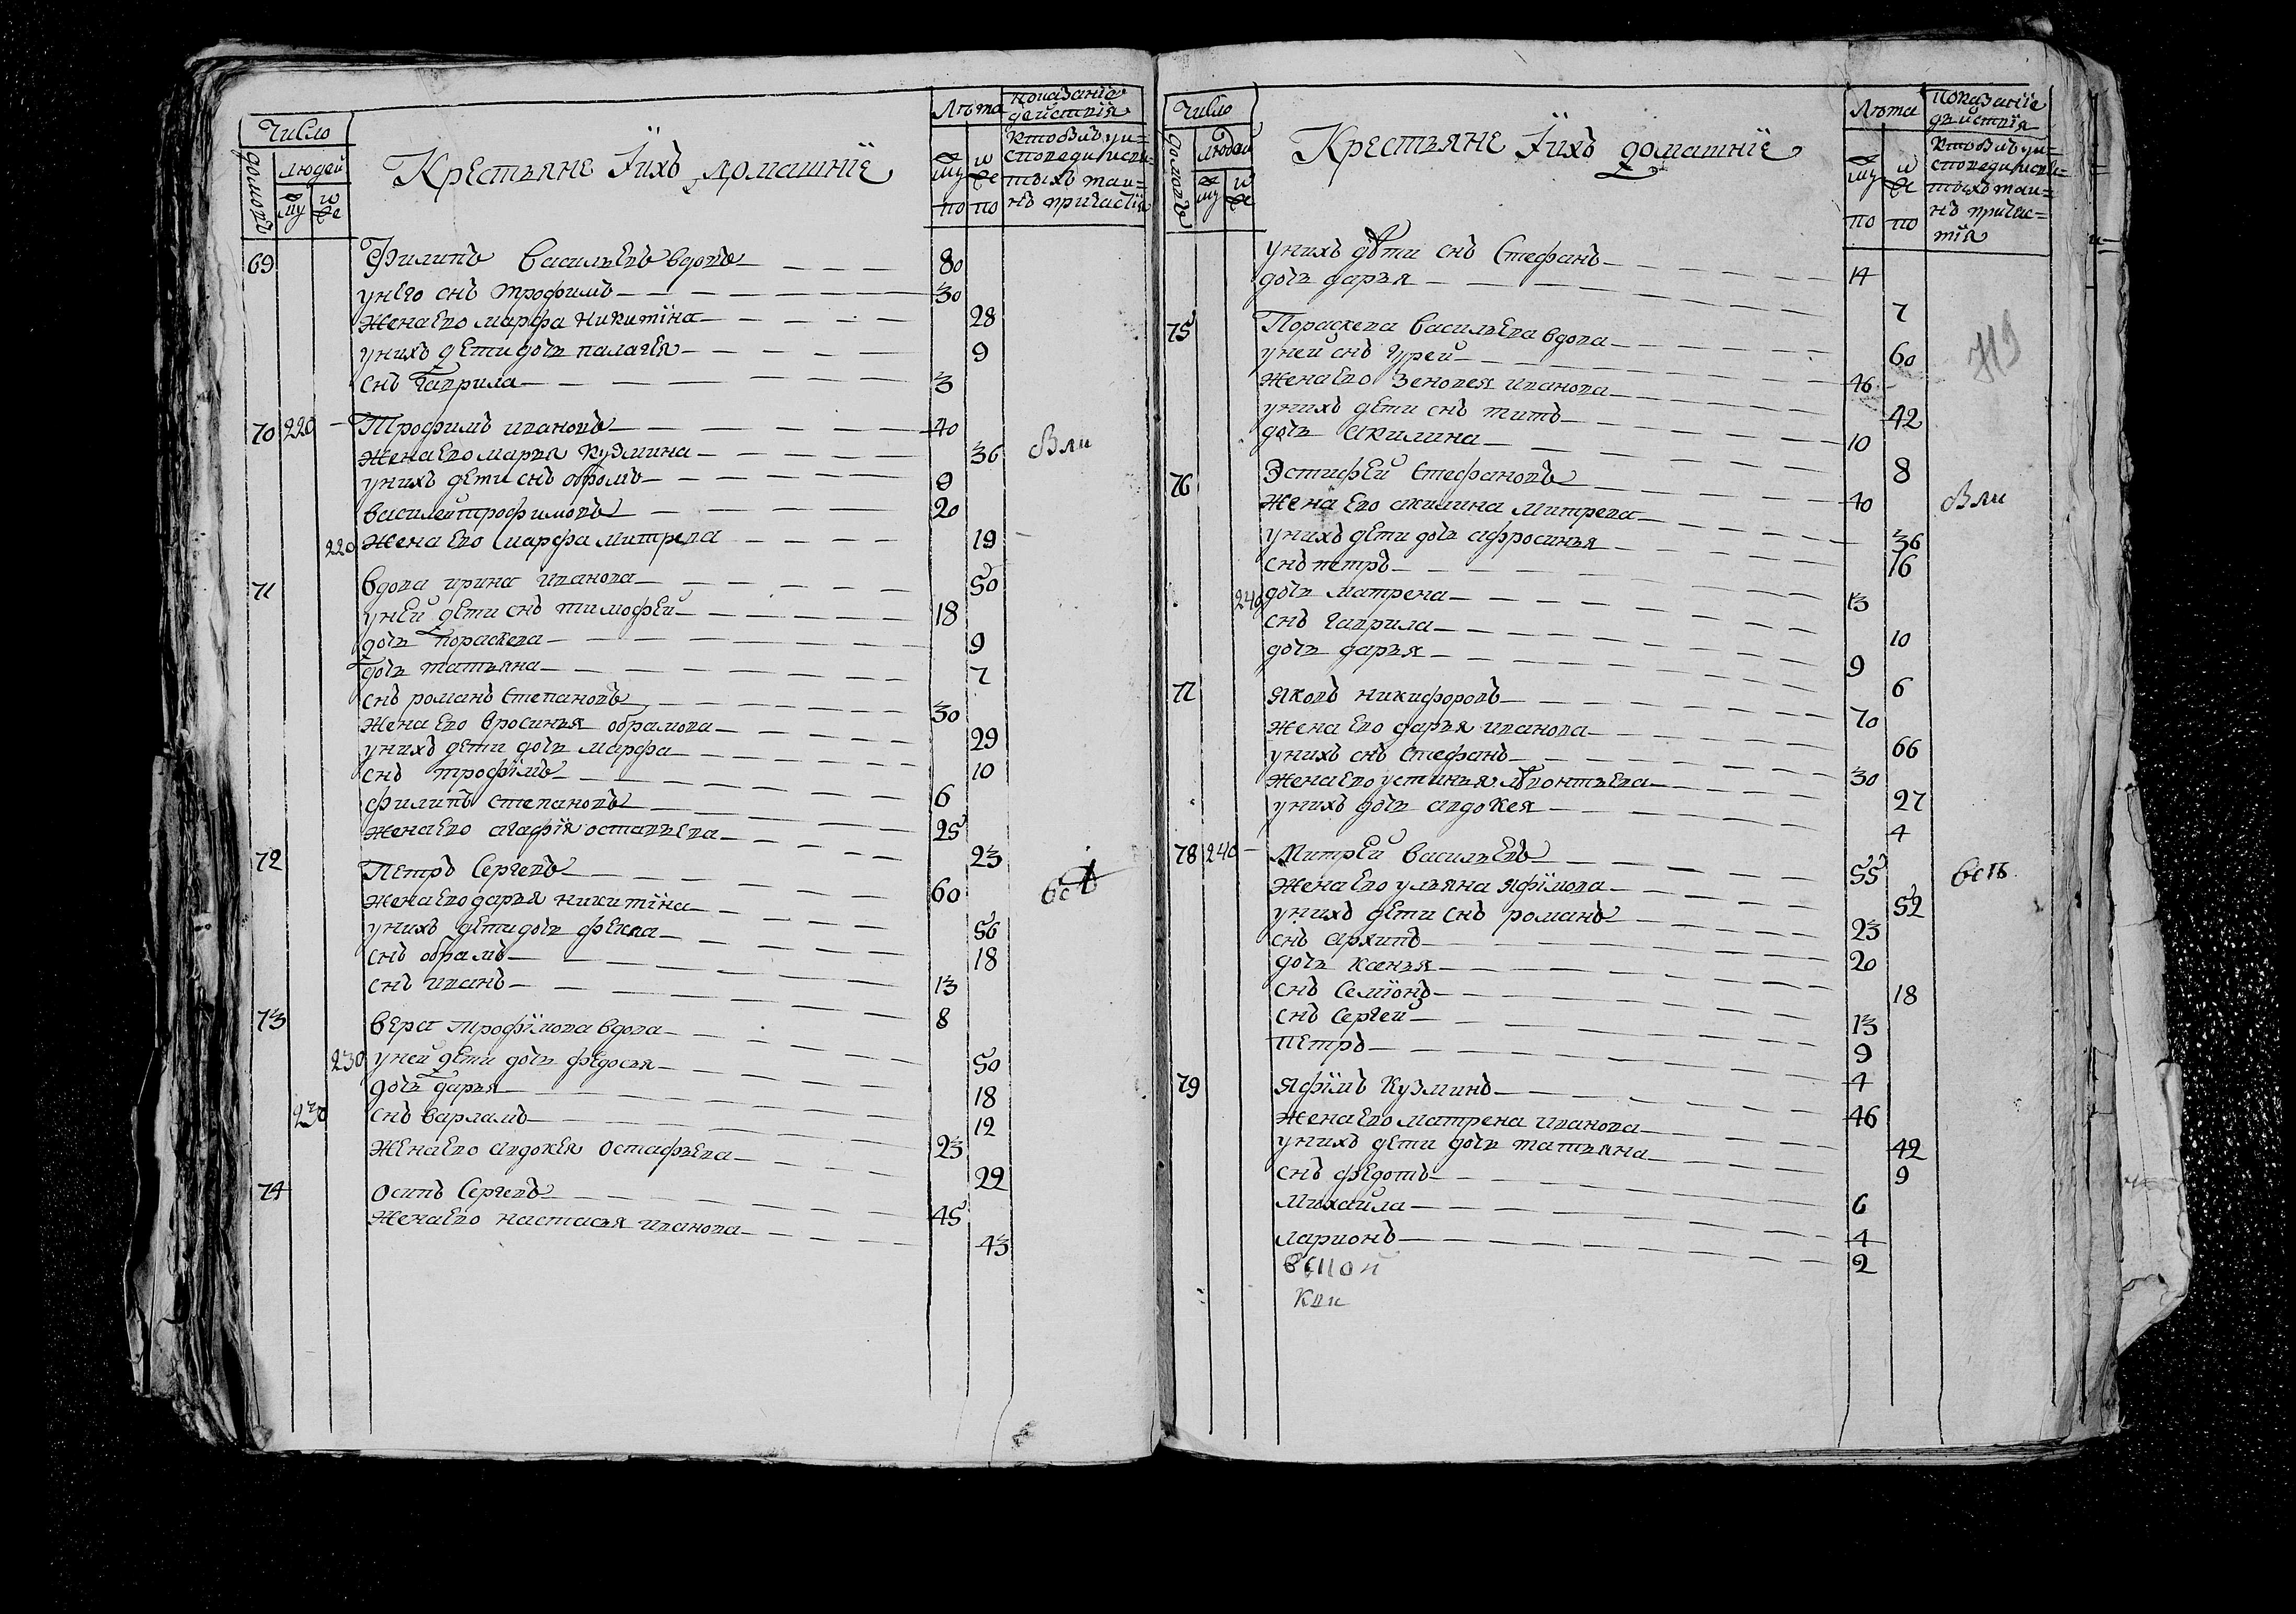 Число
домовъ
людей
му
же
Крестьяне Їихъ домашнїе
Лѣта
му
же
по
по
показанїе
действїя
кто былъ уи=
споведи исвя=
тыхъ таи=
нъ причастїя
69 Филипъ василЬевъ вдовъ 80
унЕго снъ трофимъ 30
жена Ево марфа никитїна 28
унихъ дЕти дочь палагЕя 9
снъ Гаврила 3
70 220 Трофимъ ивановъ 40
жена Ево марья кузмина 36 Были
унихъ дЕти снъ обромъ 9
василей трофимовъ 20
220 жена Ево марфа митрева 19
71 вдова ирина иванова 50
унЕй дЕти снъ тимофЕй 18
дочь пораскева 9
дочь татьяна 7
снъ романъ степановъ 30
жена Ево вросинья обрамова 29
унихъ дЕти дочь марфа 10
снъ трофїмъ 6
филипъ степановъ 25
жена Ево агафїя оставьева 23
72 ПЕтръ СергЕвъ 60
жена Ево дарья никитїна 56
унихъ дЕти дочь фЕкла 18
снъ обрамъ 13
снъ иванъ 8
73 вЕра трофїмова вдова 50
230 уней дЕти дочь фЕдосья 18
дочь дарья 12
230 снъ варламъ 23
жЕна Ево авдокЕя остафьева 22
74 осипъ СергЕвъ 45
жена Ево настасья иванова 43
Число
домовъ
людей
му
же
Крестьяне Їихъ домашнїе
Лѣта
му
же
по
по
Показанїе
дѣйствїя
кто былъ уи=
споведи исвя=
тыхъ таи=
нъ причас=
тїя
унихъ дѣти снъ Стефанъ 14
дочь дарья 7
75 Пораскева васильЕва вдова 60
уней снъ Гурей 46
жена Ево Зеновея иванова 42
унихъ дЕти снъ титъ 10
дочь акилина 8
76 ЭстифЕй Стефановъ 40 Были
жена Ево акилина митрева 36
унихъ дЕти дочь афросинья 16
снъ петръ 13
240 дочь матрена 10
снъ гаврила 9
дочь дарья 6
77 яковъ никифоровъ 70
жена Ево дарья иванова 66
унихъ снъ Стефанъ 30
жена Ево устинья лѣонтьЕва 27
унихъ дочь авдокея 4
78 240 МитрЕй васильЕвъ 55
жена Ево ульяна яфїмова 52
унихъ дЕти снъ романъ 23
снъ архипъ 20
дочь ксенья 18
снъ Семїонъ 13
снъ Сергей 9
пЕтръ 4
79 яфїмъ Кузминъ 46
жена Ево матрена иванова 42
унихъ дЕти дочь татьяна 9
снъ фЕдотъ 6
михайла 4
ларионъ 2